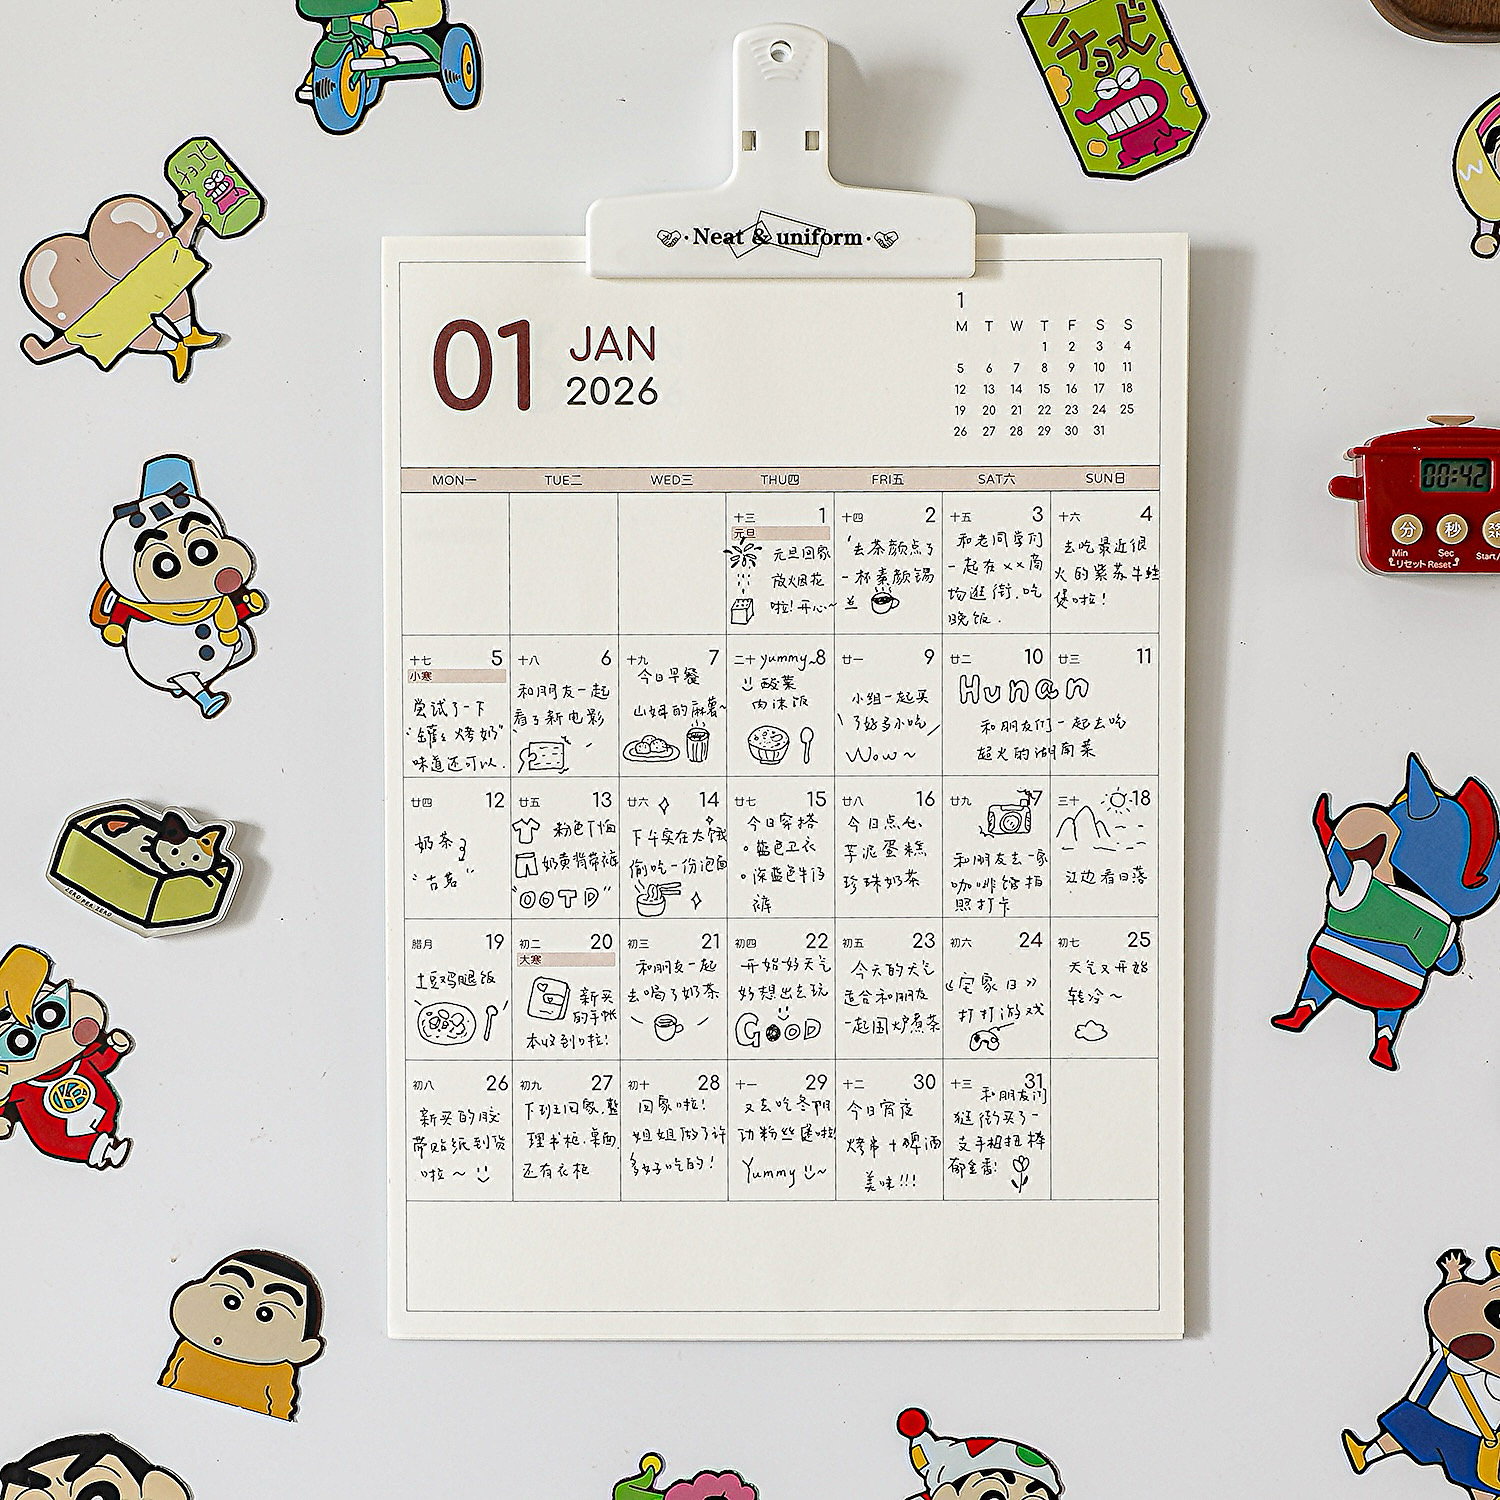 チョコビ
チョコビ
Neat & uniform
01 JAN
2026
1
M T W T F S S
1 2 3 4
5 6 7 8 9 10 11
12 13 14 15 16 17 18
19 20 21 22 23 24 25
26 27 28 29 30 31
MON一 TUE二 WED三 THU四 FRI五 SAT六 SUN日
十三 1
元旦
元旦回家
放烟花
啦!开心~
十四 2
去茶颜点了
一杯素颜锡
兰
十五 3
和老同学们
一起在××商
场逛街.吃
晚饭.
十六 4
去吃最近很
火的紫苏牛蛙
煲啦!
十七 5
小寒
尝试了一下
"罐罐烤奶"
味道还可以.
十八 6
和朋友一起
看了新电影
十九 7
今日早餐
山姆的麻薯~
二十 yummy~8
酸菜
肉沫饭
廿一 9
小组一起买
了好多小吃
Wow~
廿二 10
廿三 11
Hunan
和朋友们一起去吃
超火的湖南菜
廿四 12
奶茶
"古茗"
廿五 13
粉色T恤
奶黄背带裤
"OOTD"
廿六 14
下午实在太饿
偷吃一份泡面
廿七 15
今日穿搭
蓝色卫衣
深蓝色牛仔
裤
廿八 16
今日点心
芋泥蛋糕
珍珠奶茶
廿九 17
和朋友去一家
咖啡馆拍
照打卡
三十 18
江边看日落
腊月 19
土豆鸡腿饭
初二 20
大寒
新买
的手帐
本收到啦!
初三 21
和朋友一起
去喝了奶茶
初四 22
开始好天气
好想出去玩
GOOD
初五 23
今天的天气
适合和朋友
一起围炉煮茶
初六 24
《宅家日》
打打游戏
初七 25
天气又开始
转冷~
初八 26
新买的胶
带贴纸到货
啦~
初九 27
下班回家.整
理书柜.桌面.
还有衣柜
初十 28
回家啦!
姐姐做了许
多好吃的!
十一 29
又去吃冬阴
功粉丝煲啦
Yummy~
十二 30
今日宵夜
烤串+啤酒
美味!!!
十三 31
和朋友们
逛街买了一
支手机扭棒
郁金香!
00:42
分 秒
Min Sec Start/
リセット Reset
ZERO PER ZERO
KB